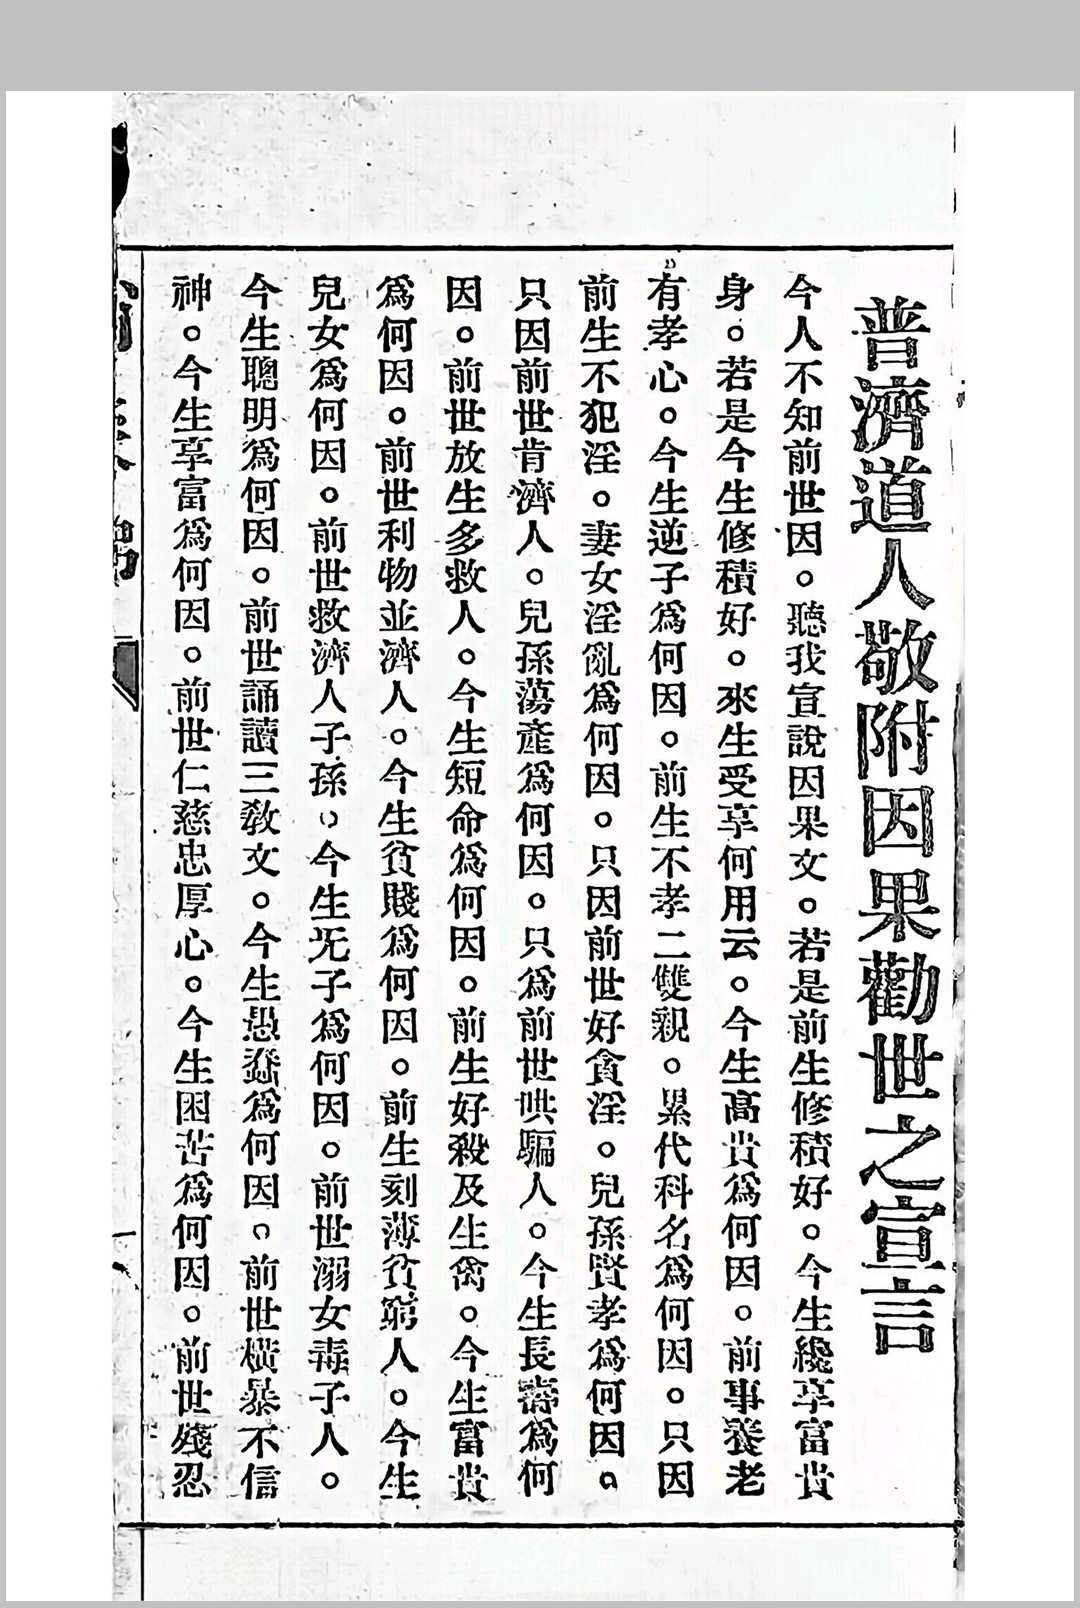 普濟道人敬附因果勸世之宣言
今人不知前世因。聽我宣說因果文。若是前生修積好。今生纔享富貴
身。若是今生修積好。來生受享何用云。今生高貴為何因。前事養老
有孝心。今生逆子為何因。前生不孝二雙親。累代科名為何因。只因
前生不犯淫。妻女淫亂為何因。只因前世好貪淫。兒孫賢孝為何因。
只因前世肯濟人。兒孫蕩產為何因。只為前世哄騙人。今生長壽為何
因。前世放生多救人。今生短命為何因。前生好殺及生禽。今生富貴
為何因。前世利物並濟人。今生貧賤為何因。前生刻薄貧窮人。今生
兒女為何因。前世救濟人子孫。今生旡子為何因。前世溺女毒子人。
今生聰明為何因。前世誦讀三教文。今生愚蠢為何因。前世橫暴不信
神。今生享富為何因。前世仁慈忠厚心。今生困苦為何因。前世殘忍